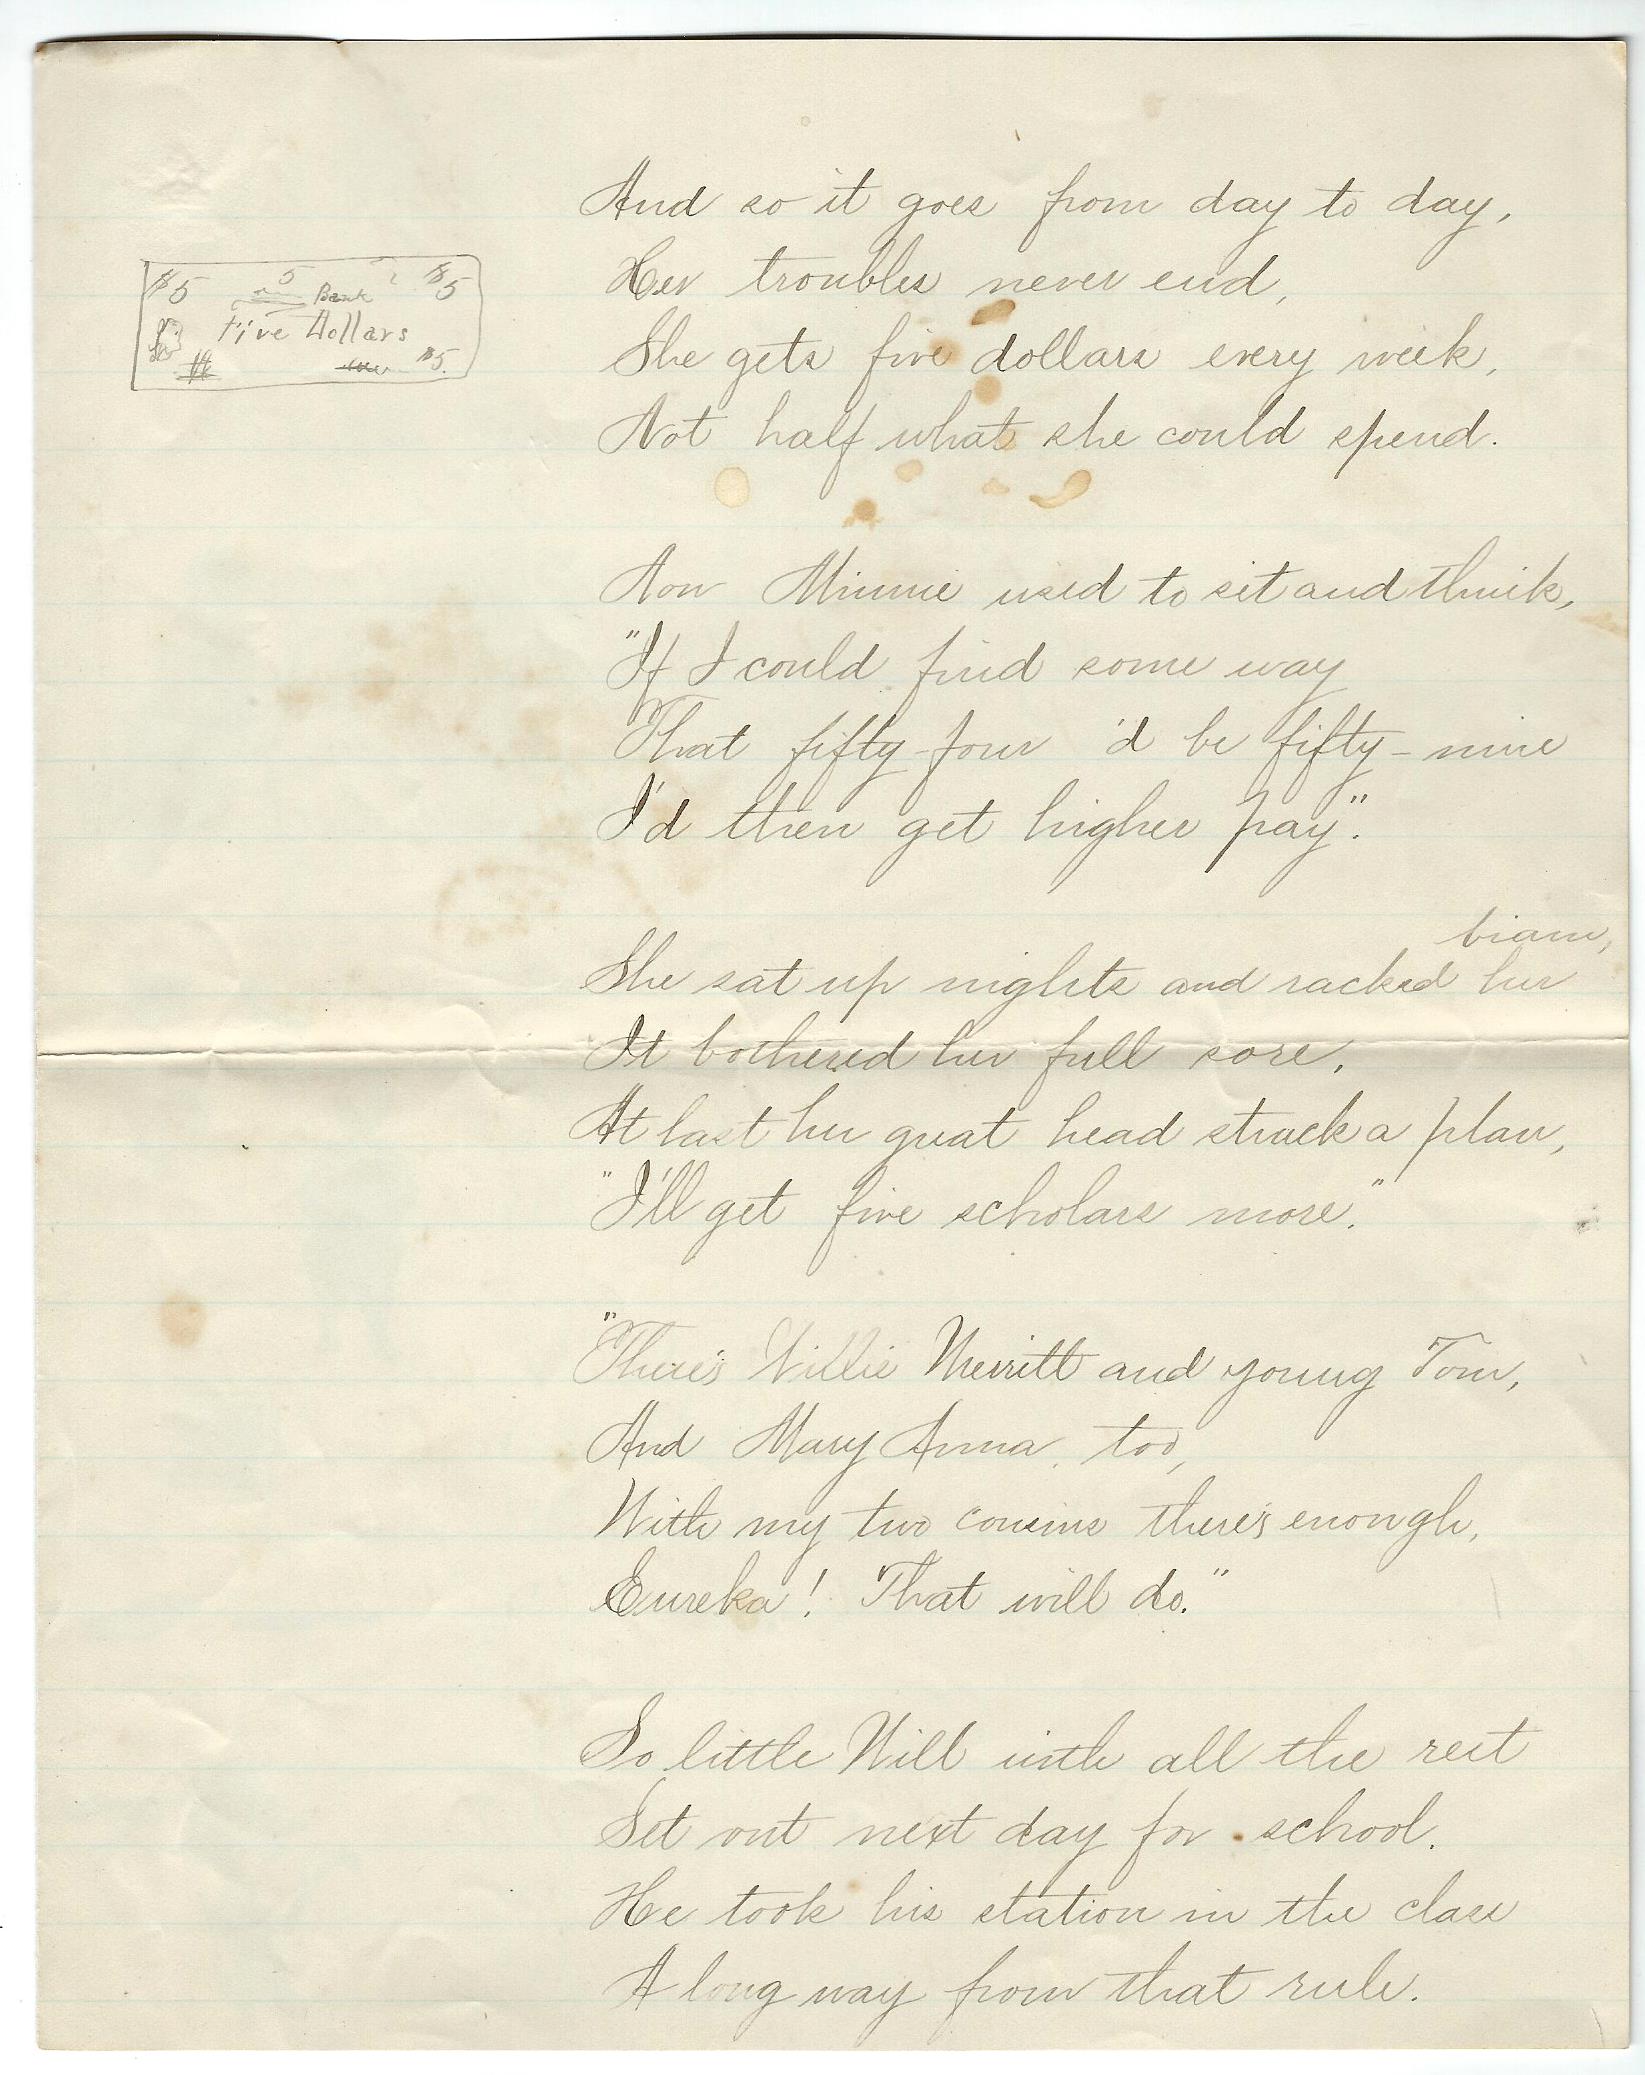 $5 5 Bank $5
Five Dollars
$5.
And so it goes from day to day,
Her troubles never end,
She gets five dollars every week,
Not half what she could spend.
Now Minnie used to sit and think,
"If I could find some way
That fifty-four 'd be fifty-nine
I'd then get higher pay."
brain,
She sat up nights and racked her
It bothered her full sore,
At last her great head struck a plan,
"I'll get five scholars more."
"There's Willie Merritt and young Tom,
And Mary Anna, too,
With my two cousins there's enough,
Eureka! That will do."
So little Will with all the rest
Set out next day for school.
He took his station in the class
A long way from that rule.